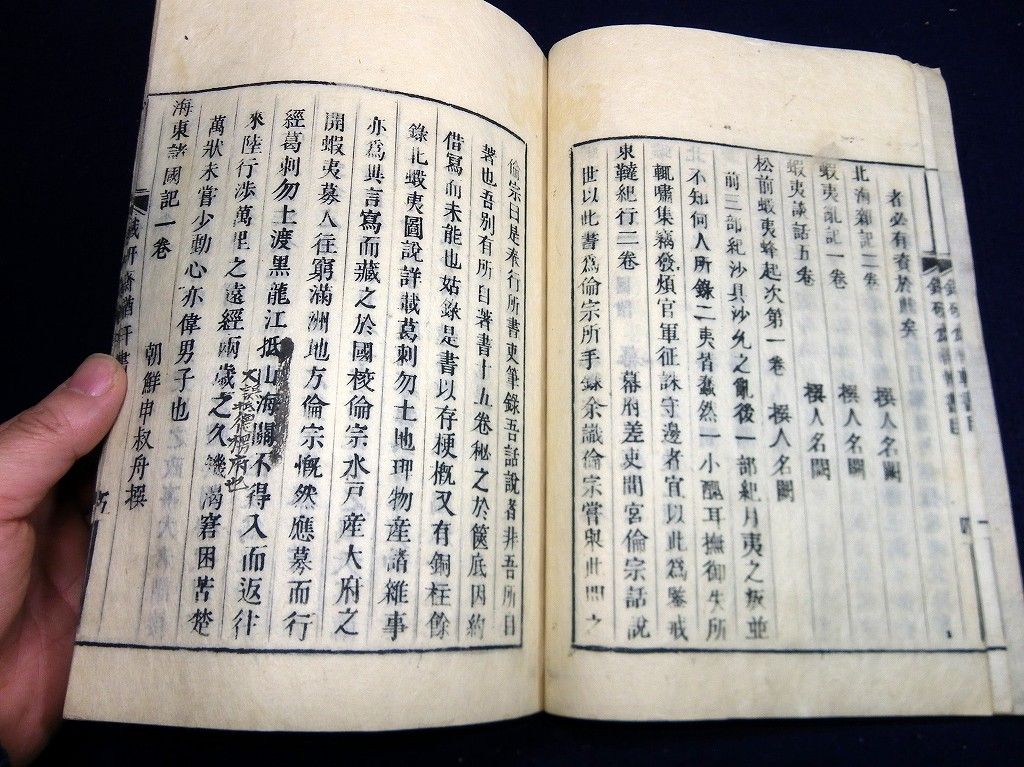 者必有資於此矣
北海雜記二卷 撰人名闕
蝦夷亂記一卷 撰人名闕
蝦夷談話五卷 撰人名闕
松前蝦夷蜂起次第一卷 撰人名闕
前三部紀沙具沙允之亂後一部紀月夷之叛並
不知何人所錄二夷者蠢然一小醜耳撫御失所
輒嘯集竊發煩官軍征誅守邊者宜以此為鑒戒
東韃紀行二卷 幕府差吏間宮倫宗話說
世以此書為倫宗所手錄余識倫宗嘗與此問之
倫宗曰是奉行所書吏筆錄吾話說者非吾所自
著也吾別有所自著書十五卷秘之於篋底因約
借寫而未能也姑錄是書以存梗槪又有銅柱餘
錄北蝦夷圖說詳載葛刺勿土地理物產諸雜事
亦為異言寫而藏之於國校倫宗水戶產大府之
開蝦夷募人往窮滿洲地方倫宗慨然應募而行
經葛刺勿土渡黑龍江抵山海關不得入而返往
來陸行涉萬里之遠經兩歲之久饑渴窘困苦楚
萬狀未嘗少動心亦偉男子也
海東諸國記一卷 朝鮮申叔舟撰